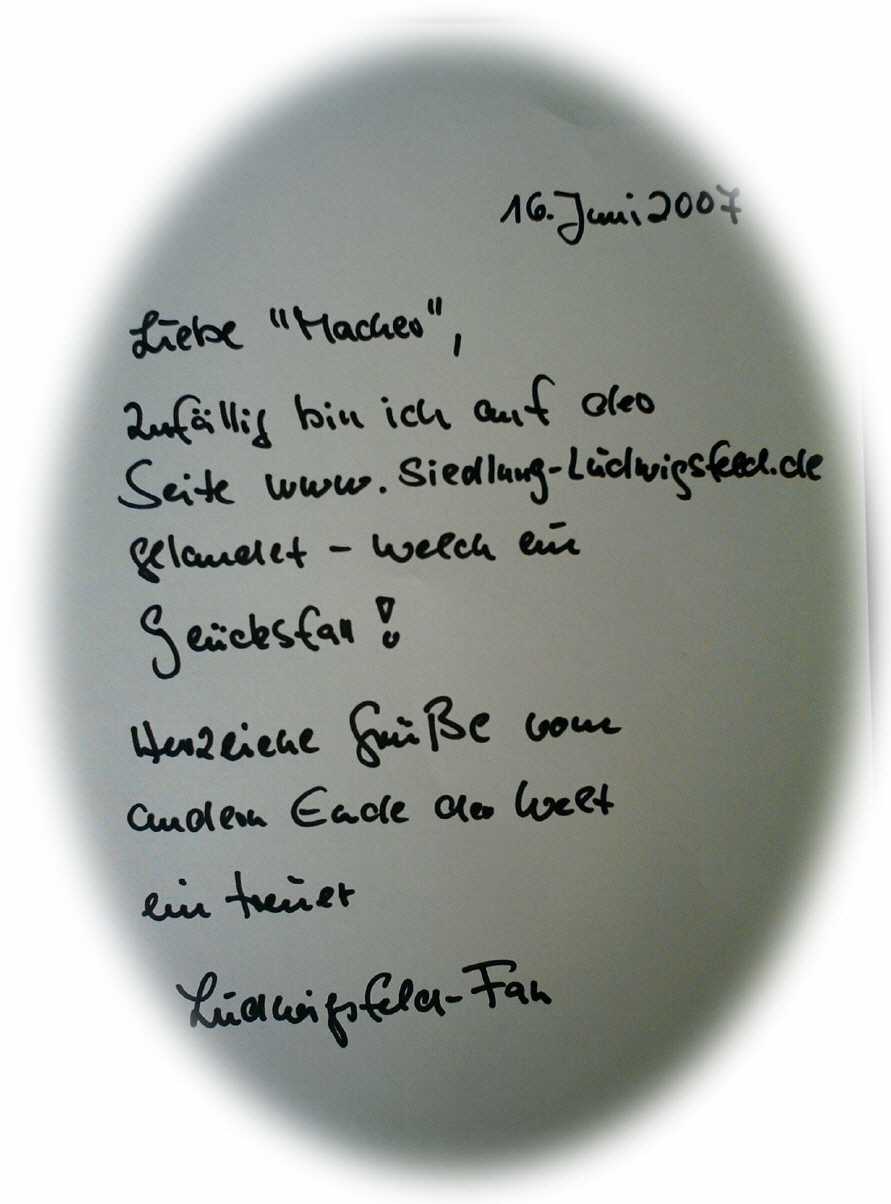 16. Juni 2007
Liebe "Macher",
zufällig bin ich auf der
Seite www.Siedlung-Ludwigsfeld.de
gelandet - welch ein
Glücksfall!
Herzliche Grüße vom
andern Ende der Welt
ein treuer
Ludwigsfeld-Fan